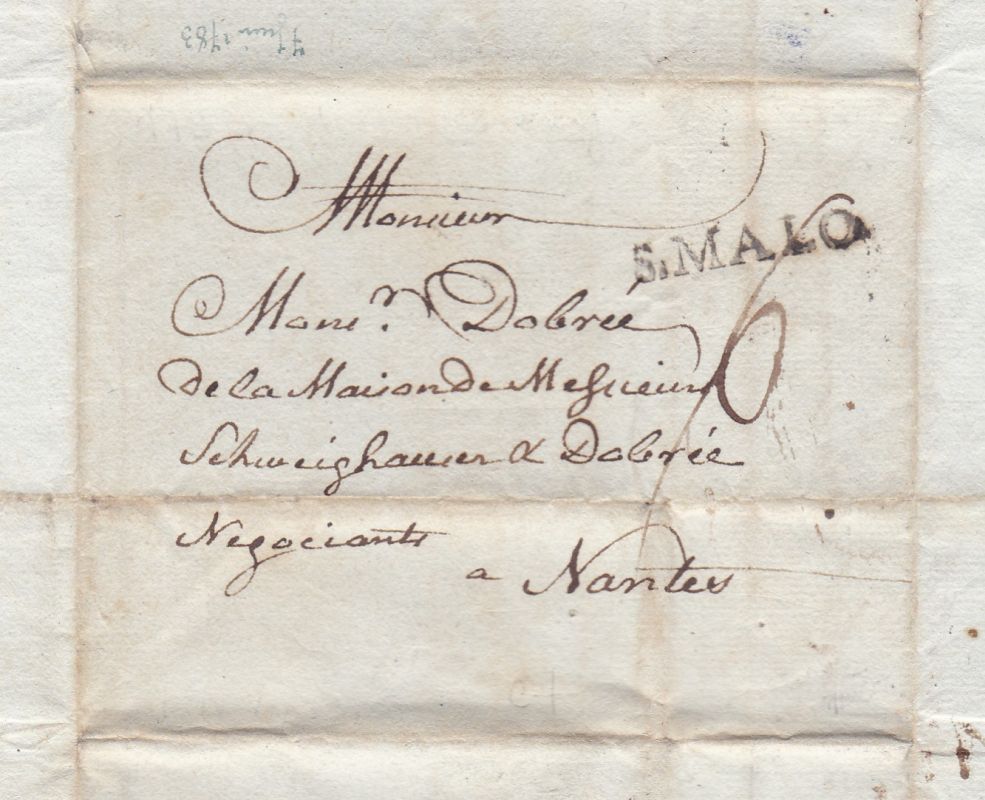 7 Juin 1783
Monsieur
S.MALO
Mons.r Dobrée
6
de la Maison de Messieurs
Schweighauser & Dobrée
Negociants
a Nantes